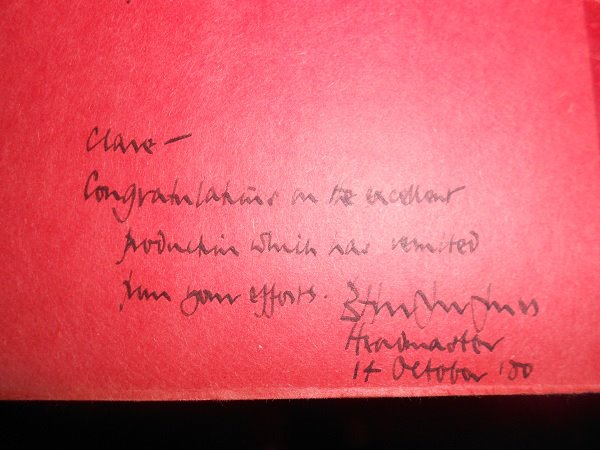 Clare —
Congratulations on the excellent
production which has resulted
from your efforts.
Headmaster
14 October '80